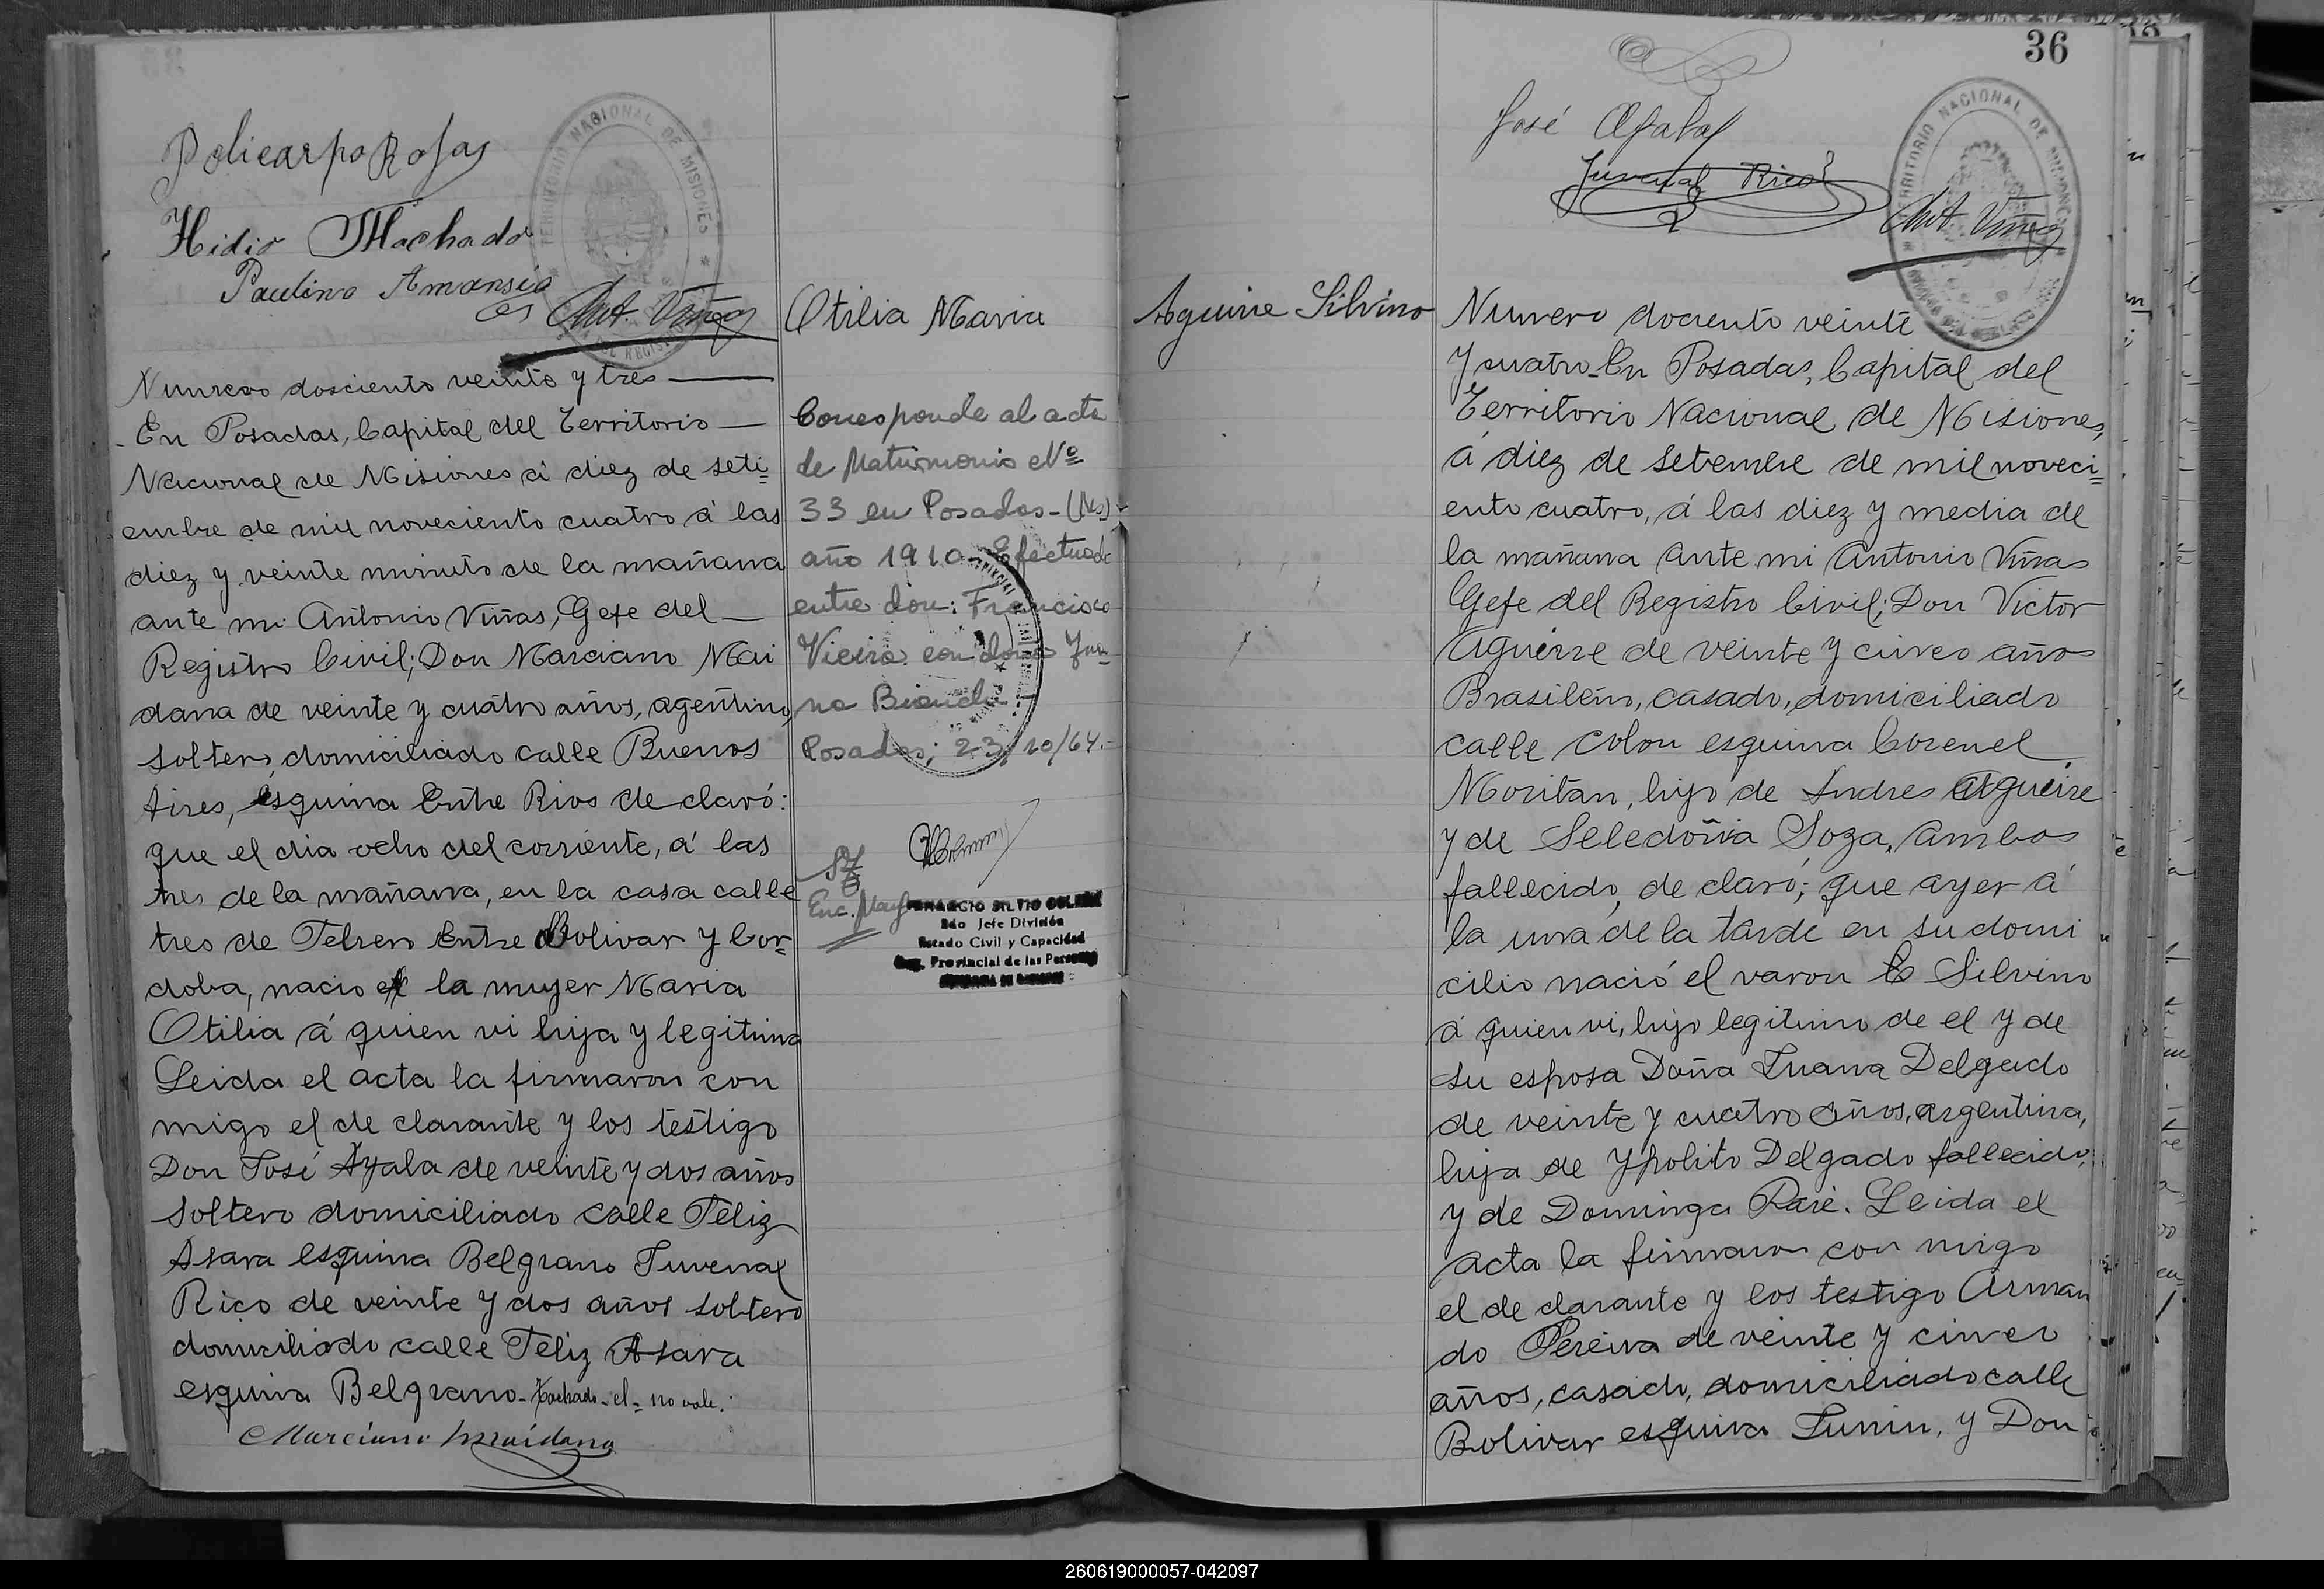 Policarpo Rojas
Hidio Machado
Paulino Amansio
Ant. Viñas
TERRITORIO NACIONAL DE MISIONES
Otilia Maria
Numero dosciento veinte y tres
En Posadas, Capital del Territorio
Nacional de Misiones á diez de seti=
embre de mil noveciento cuatro á las
diez y veinte minuto de la mañana
ante mi Antonio Viñas, Gefe del
Registro Civil; Don Marciano Mai
dana de veinte y cuatro años, agentino,
soltero, domiciliado calle Buenos
Aires, esquina Entre Rios de claró:
que el dia ocho del corriente, á las
tres de la mañana, en la casa calle
tres de Febrero Entre Bolivar y Cor-
doba, nacio el la mujer Maria
Otilia á quien vi hija y legitima
Leida el acta la firmaron con
migo el de clarante y los testigo
Don José Ayala de veinte y dos años
soltero domiciliado calle Feliz
Asara esquina Belgrano Juvenal
Rico de veinte y dos años soltero
domiciliado calle Feliz Asara
esquina Belgrano - Tachado - el = no vale.
Marciano Maidana
Corresponde al acta
de Matrimonio Nº
33 en Posadas - (Ms) -
año 1910 - Efectuado
entre don: Francisco
Vieira con doña Jua-
na Bianchi
Posadas; 23/10/64.-
Enc. May
Jefe División
Estado Civil y Capacidad
Reg. Provincial de las Personas
36
José Ayala
Juvenal Rico
Ant. Viñas
TERRITORIO NACIONAL DE MISIONES
Aguirre Silvino
Numero dociento veinte
y cuatro - En Posadas, Capital del
Territorio Nacional de Misiones,
á diez de setembre de mil noveci=
ento cuatro, á las diez y media de
la mañana ante mi Antonio Viñas
Gefe del Registro Civil; Don Victor
Aguirre de veinte y cinco años
Brasilero, casado, domiciliado
calle Colon esquina Coronel
Moritan, hijo de Andres Agueire
y de Seledoña Soza, ambos
fallecido, de claró; que ayer á
la una de la tarde en su domi
cilio nació el varon Silvino
á quien vi, hijo legitimo de el y de
su esposa Doña Juana Delgado
de veinte y cuatro años, argentina,
hija de Ypolito Delgado fallecido,
y de Dominga Paré. Leida el
acta la firmaron con migo
el de clarante y los testigo Arman
do Pereira de veinte y cinco
años, casado, domiciliado calle
Bolivar esquina Junin, y Don
260619000057-042097